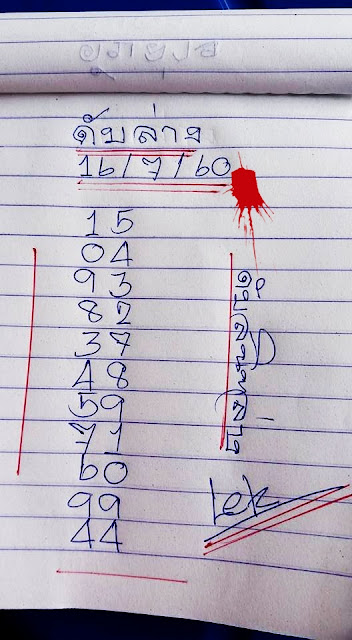 ดับล่าง
16/7/60
15
04
93
82
37
48
59
71
60
99
44
Lek